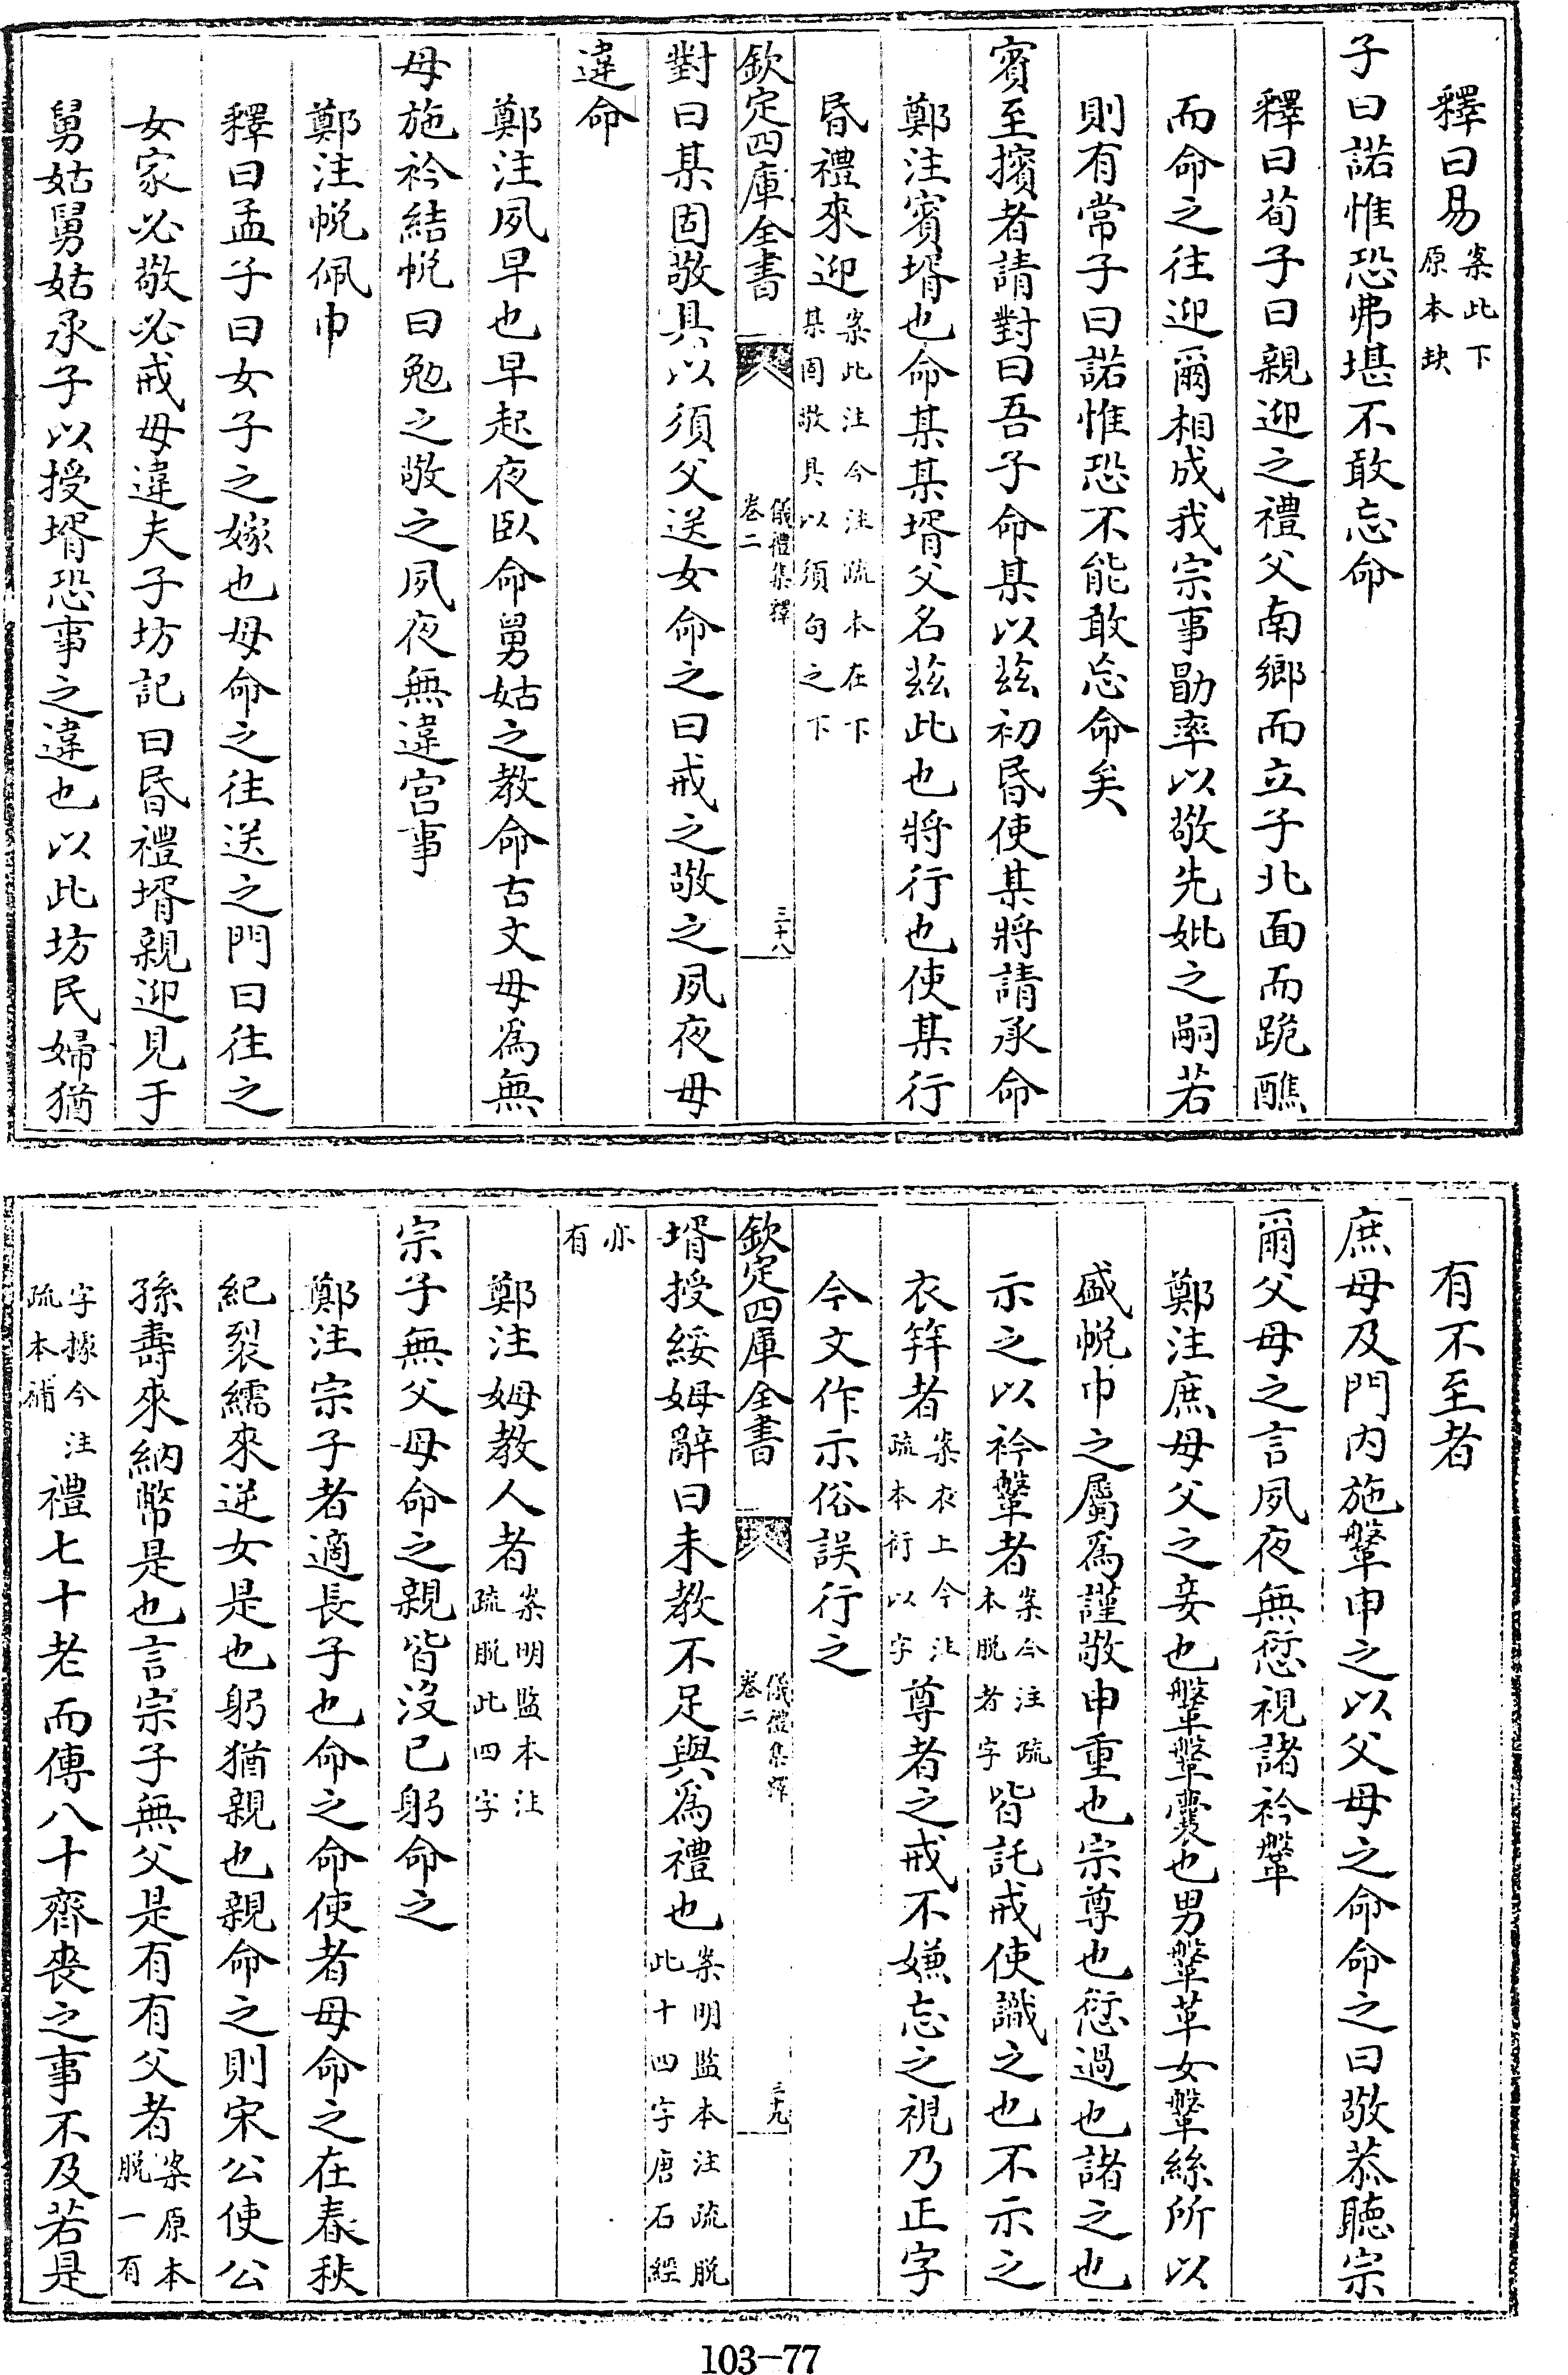 釋曰易案此下原本缺
子曰諾惟恐弗堪不敢忘命
釋曰荀子曰親迎之禮父南鄉而立子北面而跪醮
而命之往迎爾相成我宗事勖率以敬先妣之嗣若
則有常子曰諾惟恐不能敢忘命矣
賓至擯者請對曰吾子命某以茲初昏使某將請承命
鄭注賓壻也命某某壻父名茲此也將行也使某行
昏禮來迎案此注今注疏本在下某固敬具以須句之下
欽定四庫全書
儀禮集釋
卷二
三十八
對曰某固敬具以須父送女命之曰戒之敬之夙夜毋
違命
鄭注夙早也早起夜臥命舅姑之教命古文毋爲無
母施衿結帨曰勉之敬之夙夜無違宮事
鄭注帨佩巾
釋曰孟子曰女子之嫁也母命之往送之門曰往之
女家必敬必戒毋違夫子坊記曰昏禮壻親迎見于
舅姑舅姑承子以授壻恐事之違也以此坊民婦猶
有不至者
庶母及門内施鞶申之以父母之命命之曰敬恭聽宗
爾父母之言夙夜無愆視諸衿鞶
鄭注庶母父之妾也鞶鞶囊也男鞶革女鞶絲所以
盛帨巾之屬爲謹敬申重也宗尊也愆過也諸之也
示之以衿鞶者案今注疏本脫者字皆託戒使識之也不示之
衣笄者案衣上今注疏本衍以字尊者之戒不嫌忘之視乃正字
今文作示俗誤行之
欽定四庫全書
儀禮集釋
卷二
三十九
壻授綏姆辭曰未教不足與爲禮也案明監本注疏脫此十四字唐石經
亦有
鄭注姆教人者案明監本注疏脫此四字
宗子無父母命之親皆沒已躬命之
鄭注宗子者適長子也命之命使者母命之在春秋
紀裂繻來逆女是也躬猶親也親命之則宋公使公
孫壽來納幣是也言宗子無父是有有父者案原本脫一有
字據今注疏本補禮七十老而傳八十齊喪之事不及若是
103-77